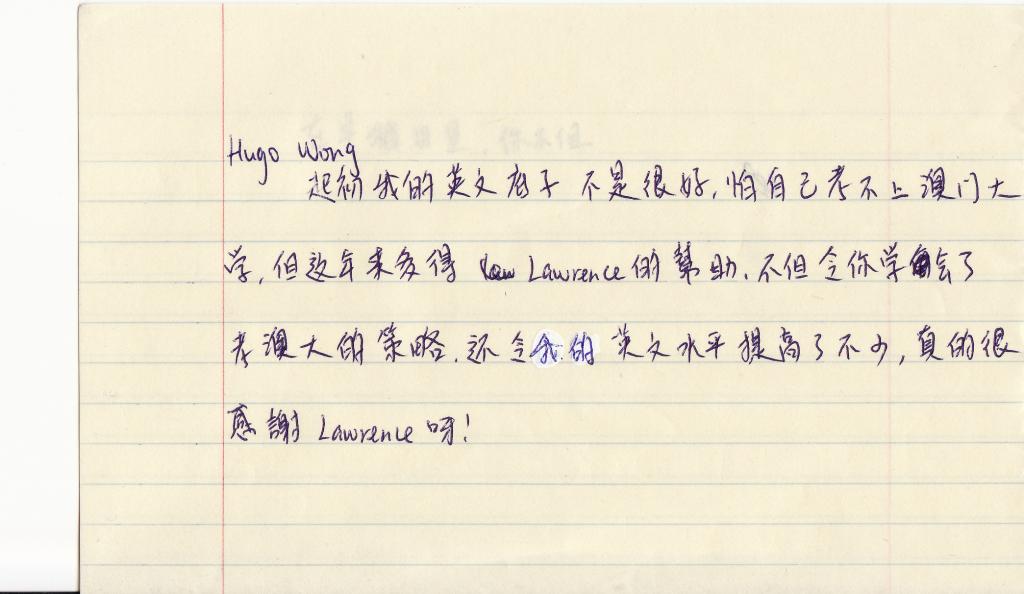 Hugo Wong
起初我的英文底子不是很好,怕自己考不上澳门大
学,但这年来多得 Lawrence的幫助,不但令你学会了
考澳大的策略,还令我的英文水平提高了不少,真的很
感謝Lawrence呀!